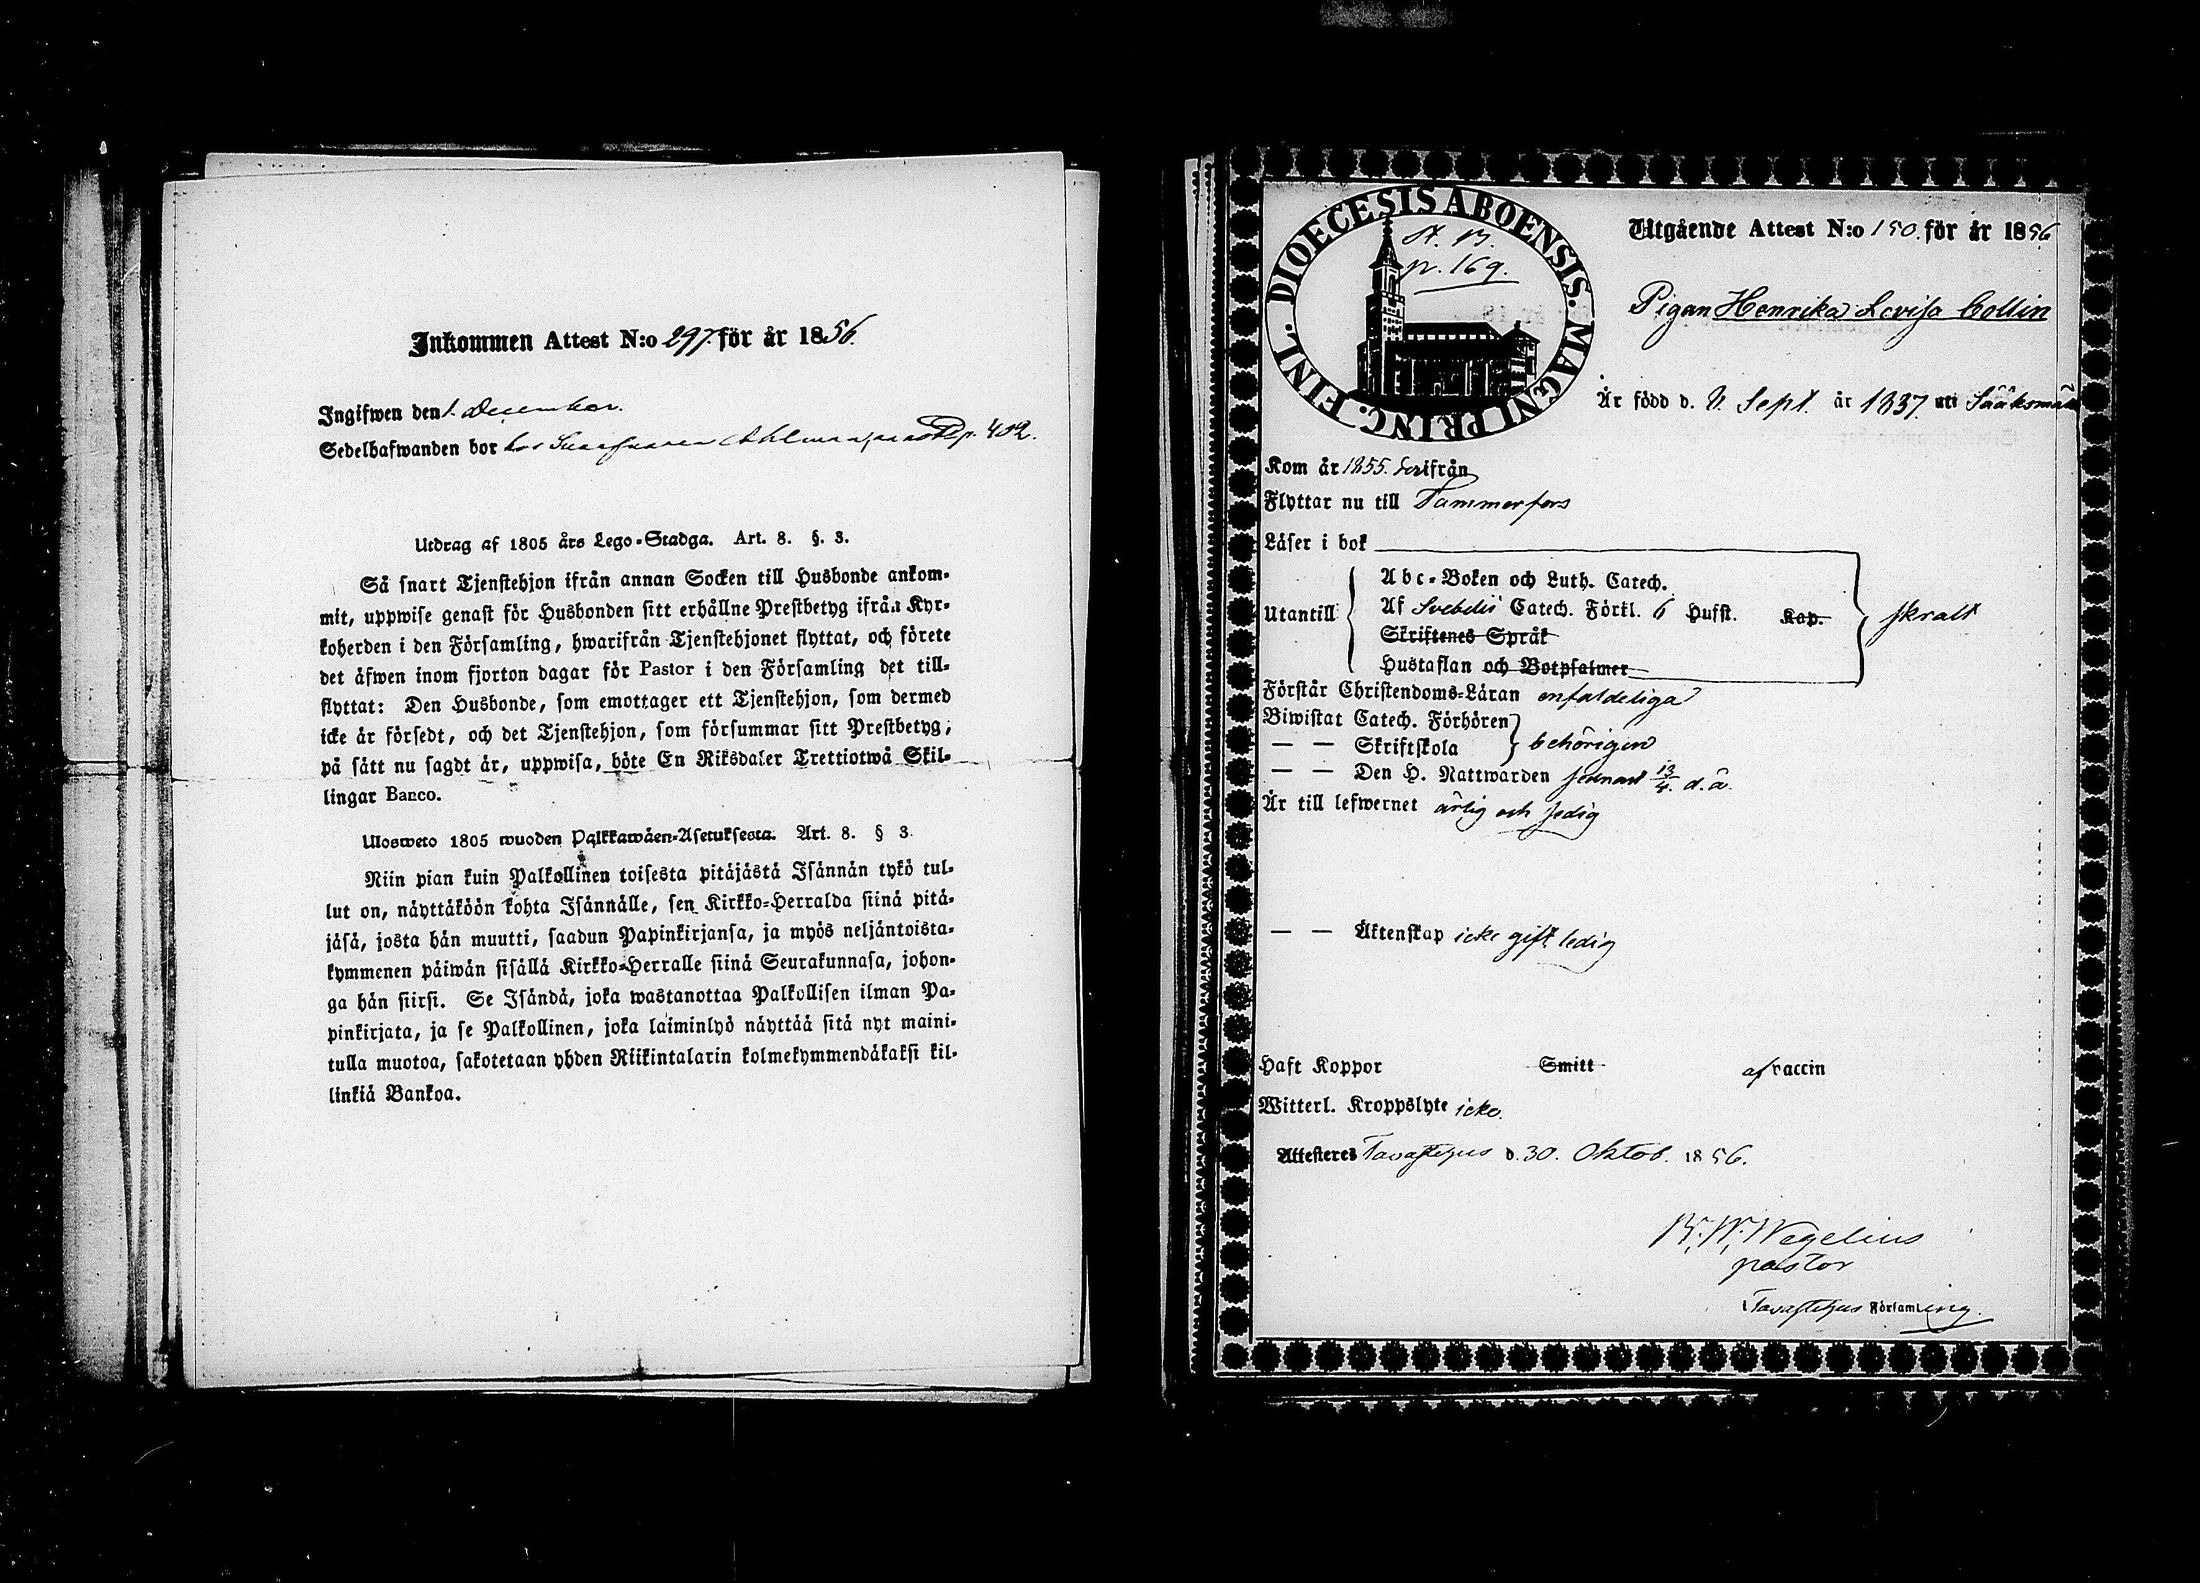 Inkommen Attest N:o 297. för år 1856.
Ingifwen den 1. December.
Sedelhafwanden bor hos p. 402.
Utdrag af 1805 års Lego-Stadga. Art. 8. §. 3.
Så snart Tjenstehjon ifrån annan Socken till Husbonde ankom-
mit, uppwise genast för Husbonden sitt erhållne Prestbetyg ifrån Kyr-
koherden i den Församling, hwarifrån Tjenstehjonet flyttat, och förete
det äfwen inom fjorton dagar för Pastor i den Församling det till-
flyttat: Den Husbonde, som emottager ett Tjenstehjon, som dermed
icke är försedt, och det Tjenstehjon, som försummar sitt Prestbetyg,
på sätt nu sagdt är, uppwisa, böte En Riksdaler Trettiotwå Skil-
lingar Banco.
Ulosweto 1805 wuoden Palkkawäen-Asetuksesta. Art. 8. § 3.
Niin pian kuin Palkollinen toisesta pitäjästä Isännän tykö tul-
lut on, näyttäköön kohta Isännälle, sen Kirkko-Herralda siinä pitä-
jäsä, josta hän muutti, saadun Papinkirjansa, ja myös neljäntoista-
kymmenen päiwän sisällä Kirkko-Herralle siinä Seurakunnasa, johon-
ga hän siirsi. Se Isändä, joka wastanottaa Palkollisen ilman Pa-
pinkirjata, ja se Palkollinen, joka laiminlyö näyttää sitä nyt maini-
tulla muotoa, sakotetaan yhden Riikintalarin kolmekymmendäkaksi kil-
linkiä Bankoa.
DIOECESIS ABOENSIS. MAGNI PRINC. FINL.
p. 169.
Utgående Attest N:o 150. för år 1856
Pigan Henrika Lovisa Collin
Är född d. Sept. år 1837. uti Sääksmäki
Kom år 1855. härifrån
Flyttar nu till Tammerfors
Läser i bok
Utantill
Abc-Boken och Luth. Catech.
Af Svebelii Catech. Förkl. 6 Hufst. Kap.
Skriftenes Språk
Hustaflan och Botpsalmer
skralt
Förstår Christendoms-Läran enfaldeliga
Biwistat Catech. Förhören
— — Skriftskola
behörigen
— — Den H. Nattwarden sednast 13/4. d. å.
Är till lefwernet ärlig och sedig
— — Äktenskap icke gift ledig
Haft Koppor Smitt af vaccin
Witterl. Kroppslyte icke.
Attesteres Tavastehus d. 30. Oktob. 1856.
Wegelius
pastor
Tavastehus Församling.